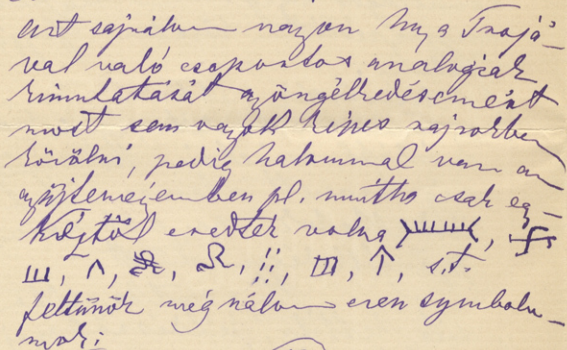 azt sajnálom nagyon hogy a Trojá-
val való csoportos analogiák
kimutatását gyöngélkedésemért
most sem vagyok képes rajzokban
közölni, pedig halommal van an
gyűjteményemben pl. mintha csak egy
kéztől eredtek volna
s.t.
feltünők még nálam ezen symbolu-
mok: